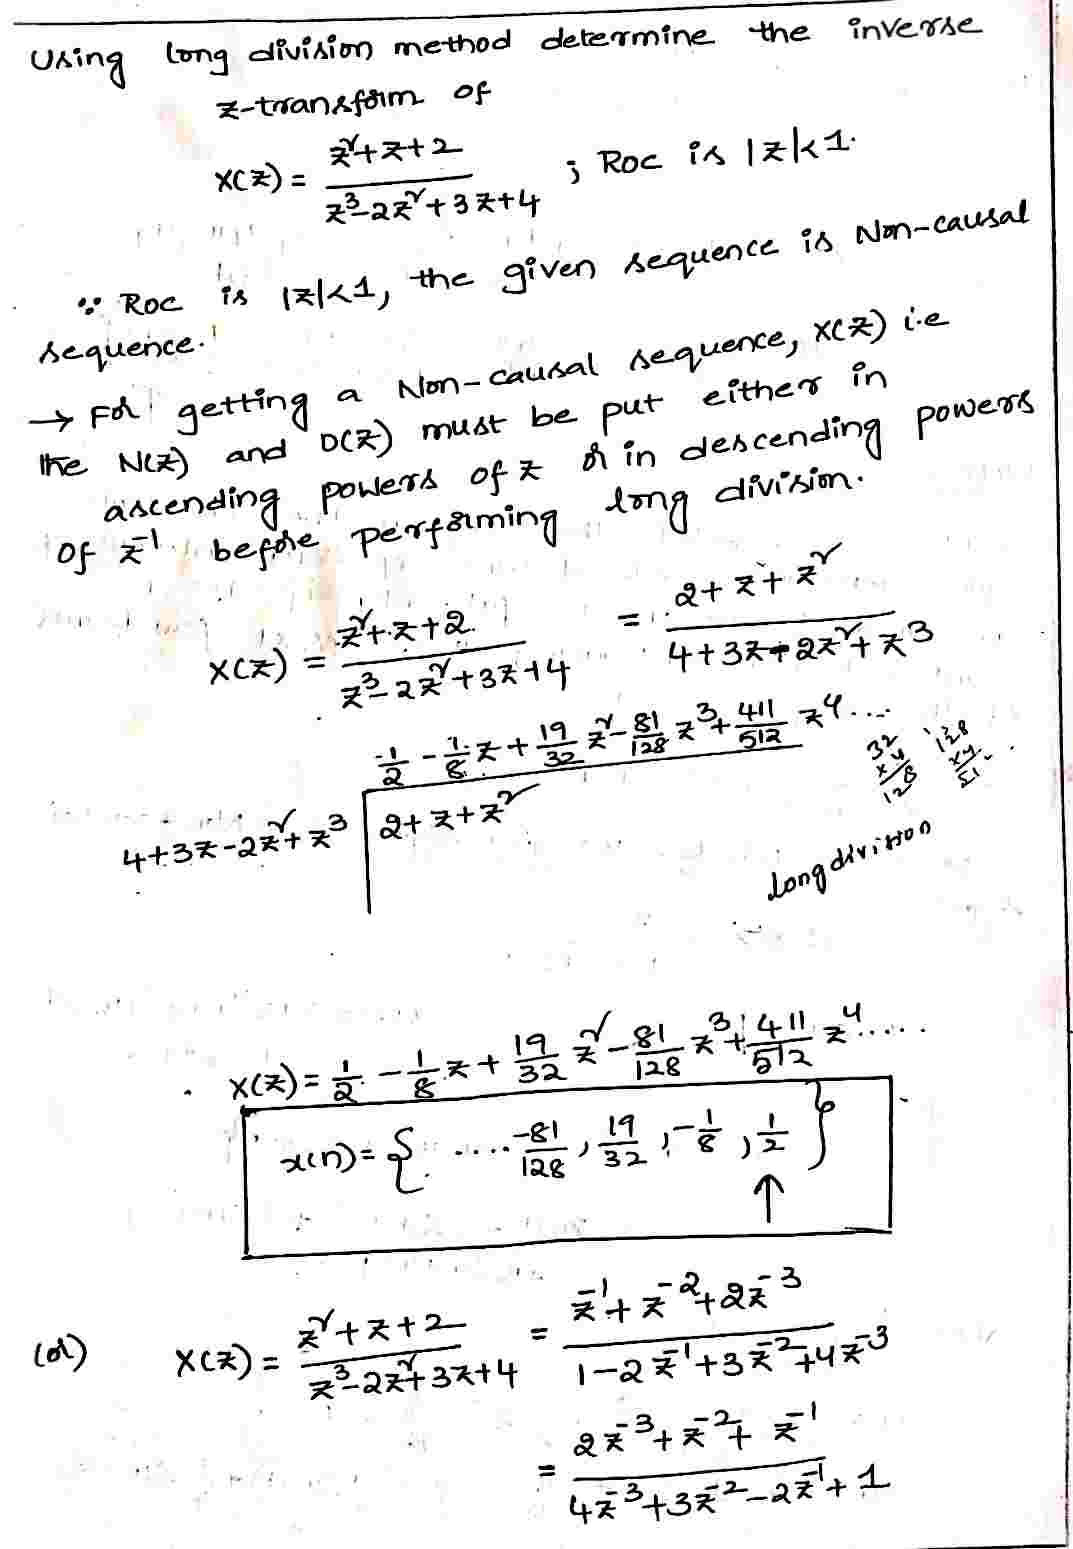 Using long division method determine the inverse
z-transform of
X(z) = z²+z+2 / z³-2z²+3z+4 ; Roc is |z|<1.
∵ Roc is |z|<1, the given sequence is Non-causal
sequence.
→ For getting a Non-causal sequence, X(z) i.e
the N(z) and D(z) must be put either in
ascending powers of z or in descending powers
of z⁻¹ before performing long division.
X(z) = z²+z+2 / z³-2z²+3z+4 = 2+z+z² / 4+3z-2z²+z³
1/2 - 1/8 z + 19/32 z² - 81/128 z³ + 411/512 z⁴ ....
32 x4 128
128 x4
4+3z-2z²+z³ | 2+z+z²
Long division
X(z) = 1/2 - 1/8 z + 19/32 z² - 81/128 z³ + 411/512 z⁴ .....
x(n) = { .... -81/128 , 19/32 , -1/8 , 1/2 }
↑
(or) X(z) = z²+z+2 / z³-2z²+3z+4 = z⁻¹+z⁻²+2z⁻³ / 1-2z⁻¹+3z⁻²+4z⁻³
= 2z⁻³+z⁻²+z⁻¹ / 4z⁻³+3z⁻²-2z⁻¹+1